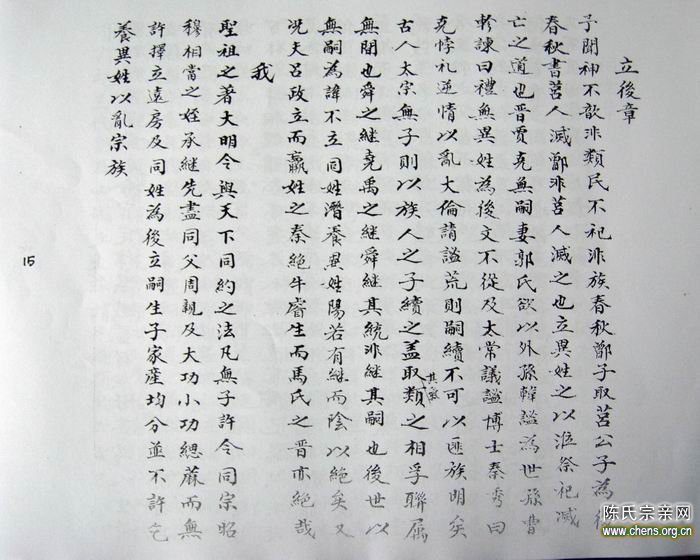 立後章
子聞神不歆非類民不祀非族春秋鄫子取莒公子為後
春秋書莒人滅鄫非莒人滅之也立異姓之以涖祭祀滅
亡之道也晋賈充無嗣妻郭氏欲以外孫韓謐為世孫曹
軫諫曰禮無異姓為後文不從及太常議謚博士秦秀曰
充悖礼逆情以亂大倫請謚荒則嗣續不可以匪族明矣
古人太宗無子則以族人之子續之盖取類其氣之相孚聯屬
無間也舜之継尭禹之継舜継其統非継其嗣也後世以
無嗣為諱不立同姓潛養異姓陽若有継而陰以絶矣又
况夫吕政立而嬴姓之秦絶牛睿生而馬氏之晋亦絶哉
我
聖祖之著大明令與天下同約之法凡無子許令同宗昭
穆相當之姪承継先盡同父周親及大功小功緦蔴而無
許擇立遠房及同姓為後立嗣生子家産均分並不許乞
養異姓以亂宗族
15
陈氏宗亲网
www.chens.org.cn